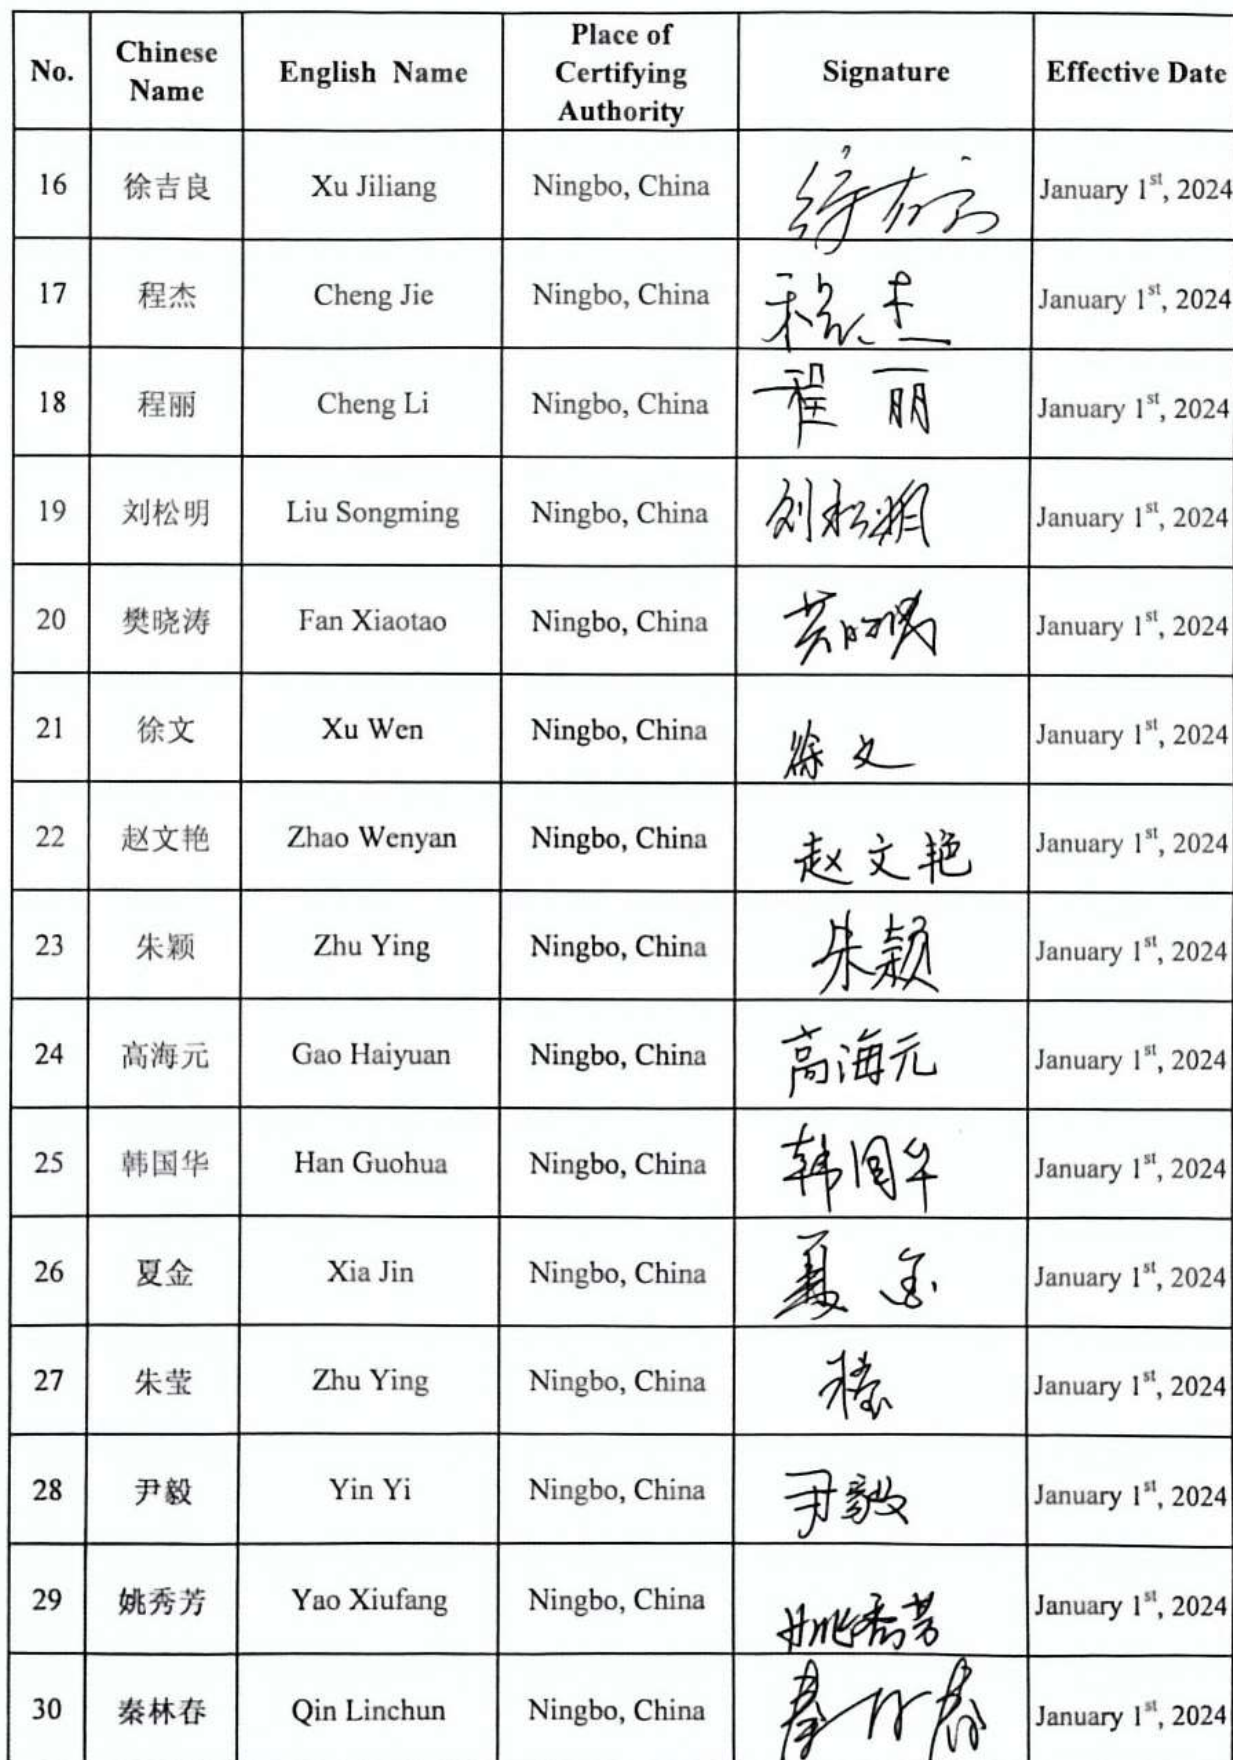 No. Chinese Name English Name Place of Certifying Authority Signature Effective Date
16 徐吉良 Xu Jiliang Ningbo, China January 1st, 2024
17 程杰 Cheng Jie Ningbo, China 程杰 January 1st, 2024
18 程丽 Cheng Li Ningbo, China 程丽 January 1st, 2024
19 刘松明 Liu Songming Ningbo, China 刘松明 January 1st, 2024
20 樊晓涛 Fan Xiaotao Ningbo, China January 1st, 2024
21 徐文 Xu Wen Ningbo, China 徐文 January 1st, 2024
22 赵文艳 Zhao Wenyan Ningbo, China 赵文艳 January 1st, 2024
23 朱颖 Zhu Ying Ningbo, China 朱颖 January 1st, 2024
24 高海元 Gao Haiyuan Ningbo, China 高海元 January 1st, 2024
25 韩国华 Han Guohua Ningbo, China 韩国华 January 1st, 2024
26 夏金 Xia Jin Ningbo, China 夏金 January 1st, 2024
27 朱莹 Zhu Ying Ningbo, China January 1st, 2024
28 尹毅 Yin Yi Ningbo, China 尹毅 January 1st, 2024
29 姚秀芳 Yao Xiufang Ningbo, China 姚秀芳 January 1st, 2024
30 秦林春 Qin Linchun Ningbo, China 秦林春 January 1st, 2024